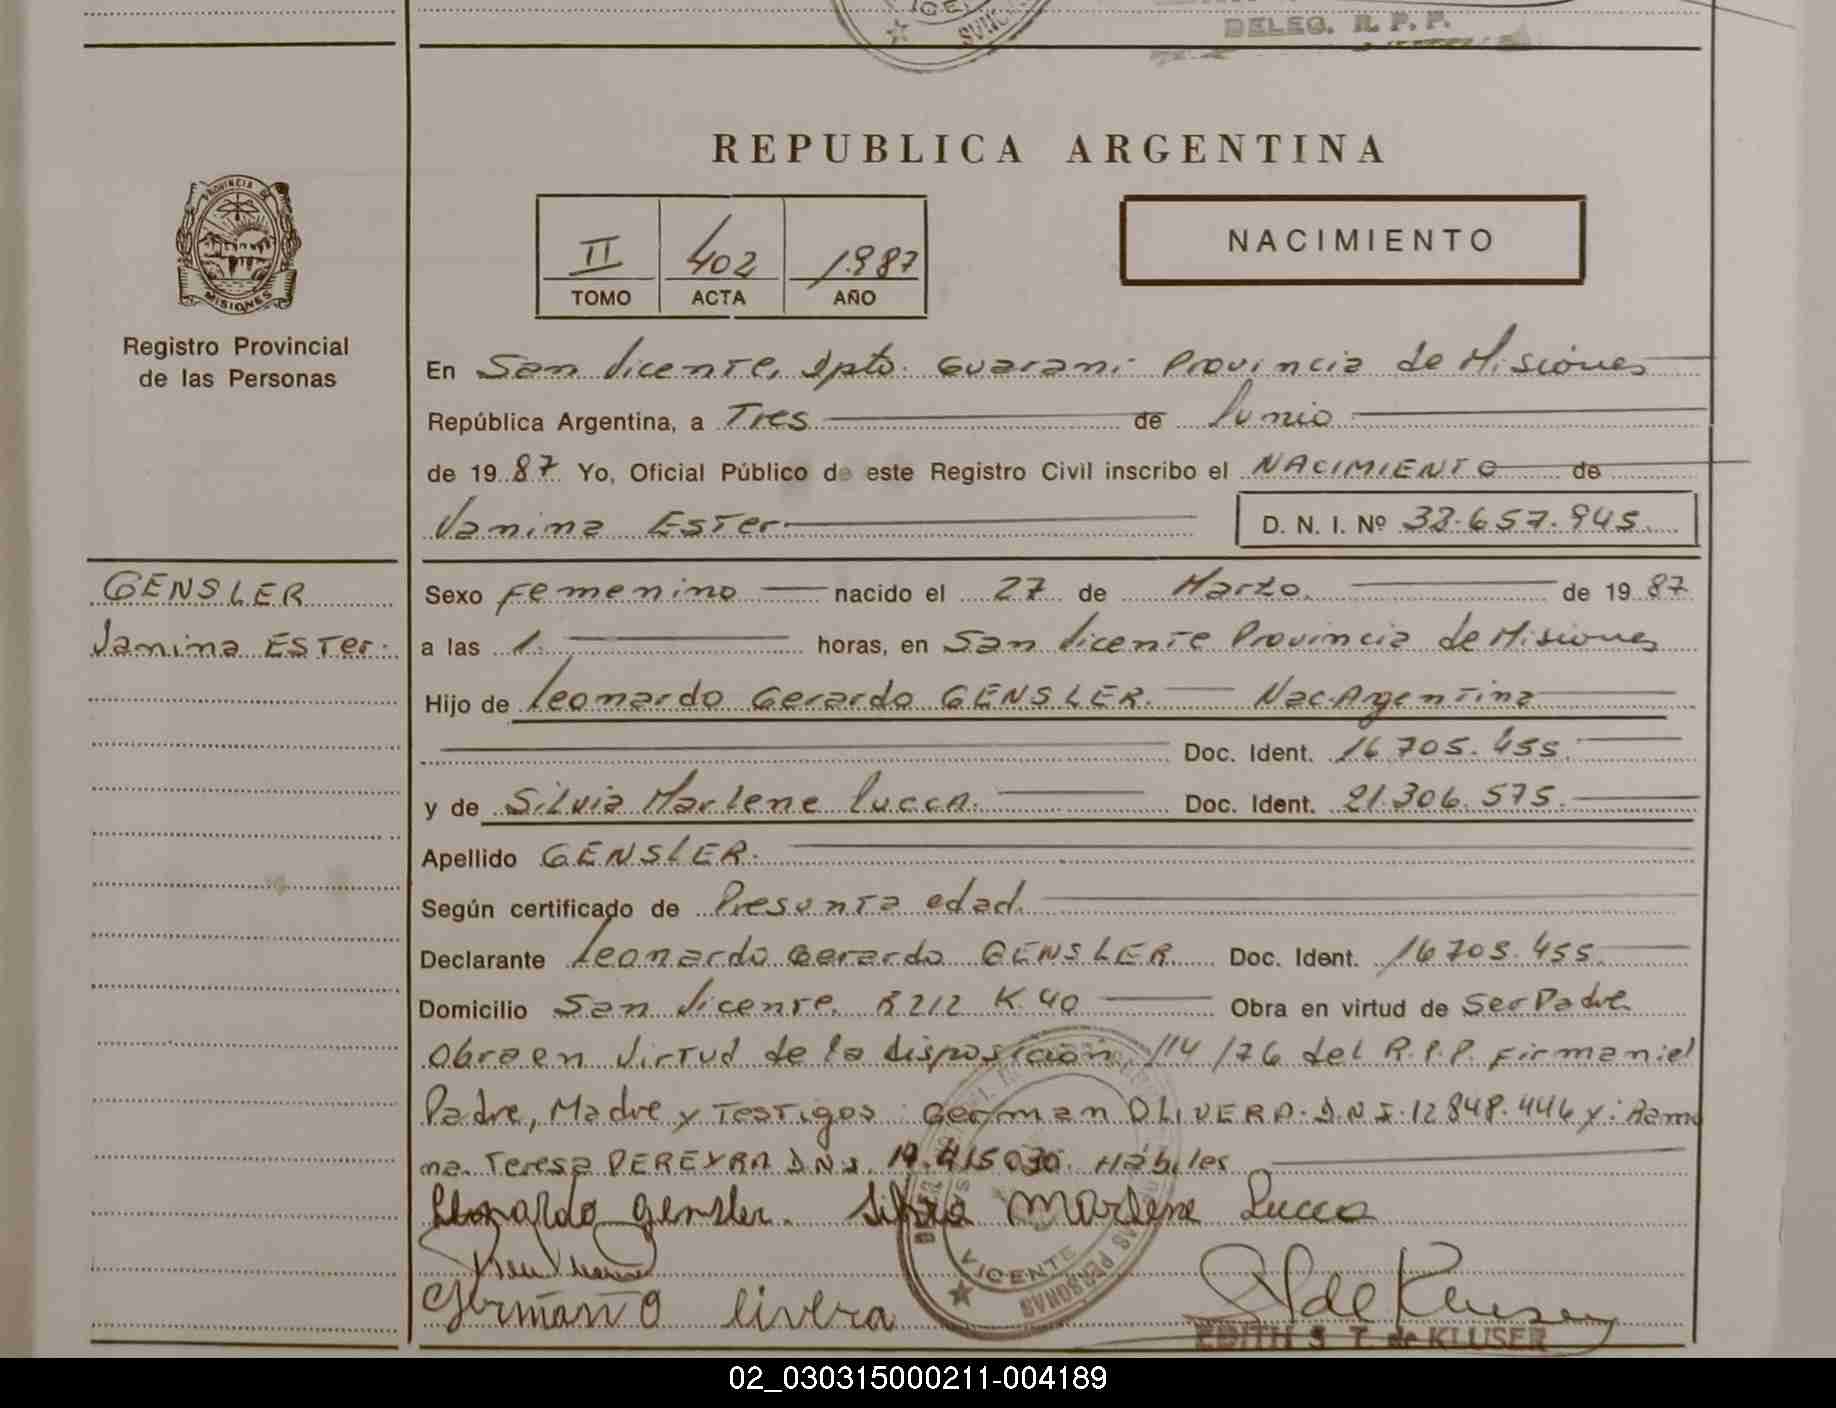 DELEG. R. P. P.
REPUBLICA ARGENTINA
II 402 1987
TOMO ACTA AÑO
NACIMIENTO
PROVINCIA DE
MISIONES
Registro Provincial
de las Personas
En San Vicente, Dpto. Guarani Provincia de Misiones
República Argentina, a Tres de Junio
de 1987 Yo, Oficial Público de este Registro Civil inscribo el NACIMIENTO de
Vanina Ester D. N. I. Nº 32.657.945
GENSLER
Vanina Ester.
Sexo Femenino nacido el 27 de Marzo. de 1987
a las 1. horas, en San Vicente Provincia de Misiones
Hijo de Leonardo Gerardo GENSLER. Nac. Argentina
Doc. Ident. 16.705.455.
y de Silvia Marlene Lucca. Doc. Ident. 21.306.575.
Apellido GENSLER.
Según certificado de Presunta edad.
Declarante Leonardo Gerardo GENSLER Doc. Ident. 16.705.455.
Domicilio San Vicente. R 212 K 40 Obra en virtud de Ser Padre
Obra en virtud de la disposicion, 114/76 del R.P.P. Firman el
Padre, Madre y Testigos: German OLIVERA. D.N.I. 12.848.446 y: Ramo
na. Teresa PEREYRA D.N.I. 415030. Hábiles
Leonardo Gensler. Silvia Marlene Lucca
German Olivera
VICENTE
PERSONAS
EDITH S. T. de KLUSER
02_030315000211-004189